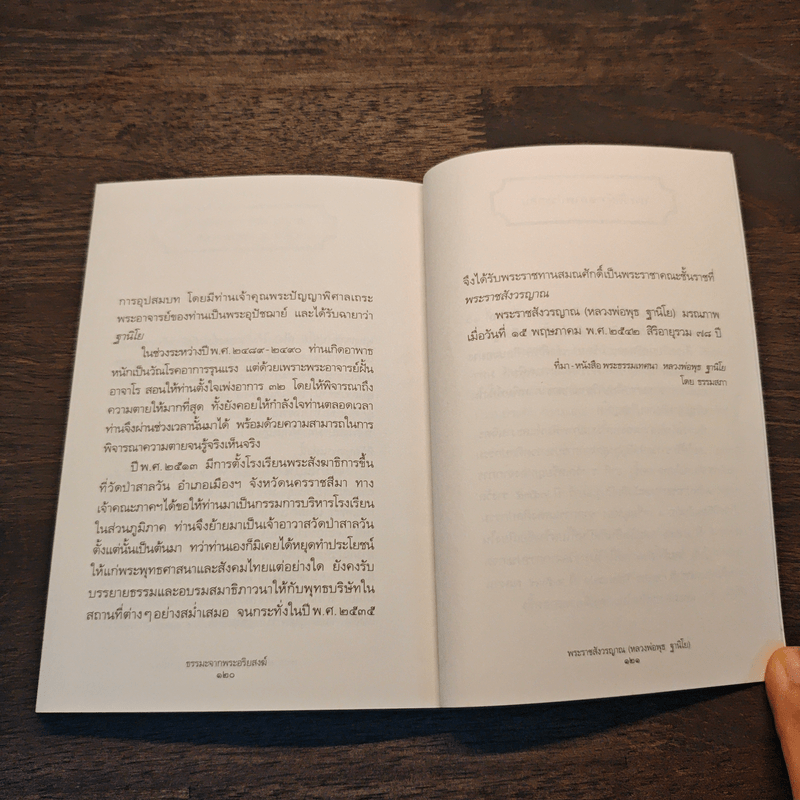 การอุปสมบท โดยมีท่านเจ้าคุณพระปัญญาพิศาลเถระ
พระอาจารย์ของท่านเป็นพระอุปัชฌาย์ และได้รับฉายาว่า
ฐานิโย
ในช่วงระหว่างปี พ.ศ. ๒๔๘๙ - ๒๔๙๐ ท่านเกิดอาพาธ
หนักเป็นวัณโรคอาการรุนแรง แต่ด้วยเพราะพระอาจารย์ฝั้น
อาจาโร สอนให้ท่านตั้งใจเพ่งอาการ ๓๒ โดยให้พิจารณาถึง
ความตายให้มากที่สุด ทั้งยังคอยให้กำลังใจท่านตลอดเวลา
ท่านจึงผ่านช่วงเวลานั้นมาได้ พร้อมด้วยความสามารถในการ
พิจารณาความตายจนรู้จริงเห็นจริง
ปี พ.ศ. ๒๕๑๓ มีการตั้งโรงเรียนพระสังฆาธิการขึ้น
ที่วัดป่าสาลวัน อำเภอเมืองฯ จังหวัดนครราชสีมา ทาง
เจ้าคณะภาคฯได้ขอให้ท่านมาเป็นกรรมการบริหารโรงเรียน
ในส่วนภูมิภาค ท่านจึงย้ายมาเป็นเจ้าอาวาสวัดป่าสาลวัน
ตั้งแต่นั้นเป็นต้นมา ทว่าท่านเองก็มิเคยได้หยุดทำประโยชน์
ให้แก่พระพุทธศาสนาและสังคมไทยแต่อย่างใด ยังคงรับ
บรรยายธรรมและอบรมสมาธิภาวนาให้กับพุทธบริษัทใน
สถานที่ต่างๆอย่างสม่ำเสมอ จนกระทั่งในปี พ.ศ. ๒๕๓๕
ธรรมะจากพระอริยสงฆ์
๑๒๐
จึงได้รับพระราชทานสมณศักดิ์เป็นพระราชาคณะชั้นราชที่
พระราชสังวรญาณ
พระราชสังวรญาณ (หลวงพ่อพุธ ฐานิโย) มรณภาพ
เมื่อวันที่ ๑๕ พฤษภาคม พ.ศ. ๒๕๔๒ สิริอายุรวม ๗๘ ปี
ที่มา - หนังสือ พระธรรมเทศนา หลวงพ่อพุธ ฐานิโย
โดย ธรรมสภา
พระราชสังวรญาณ (หลวงพ่อพุธ ฐานิโย)
๑๒๑